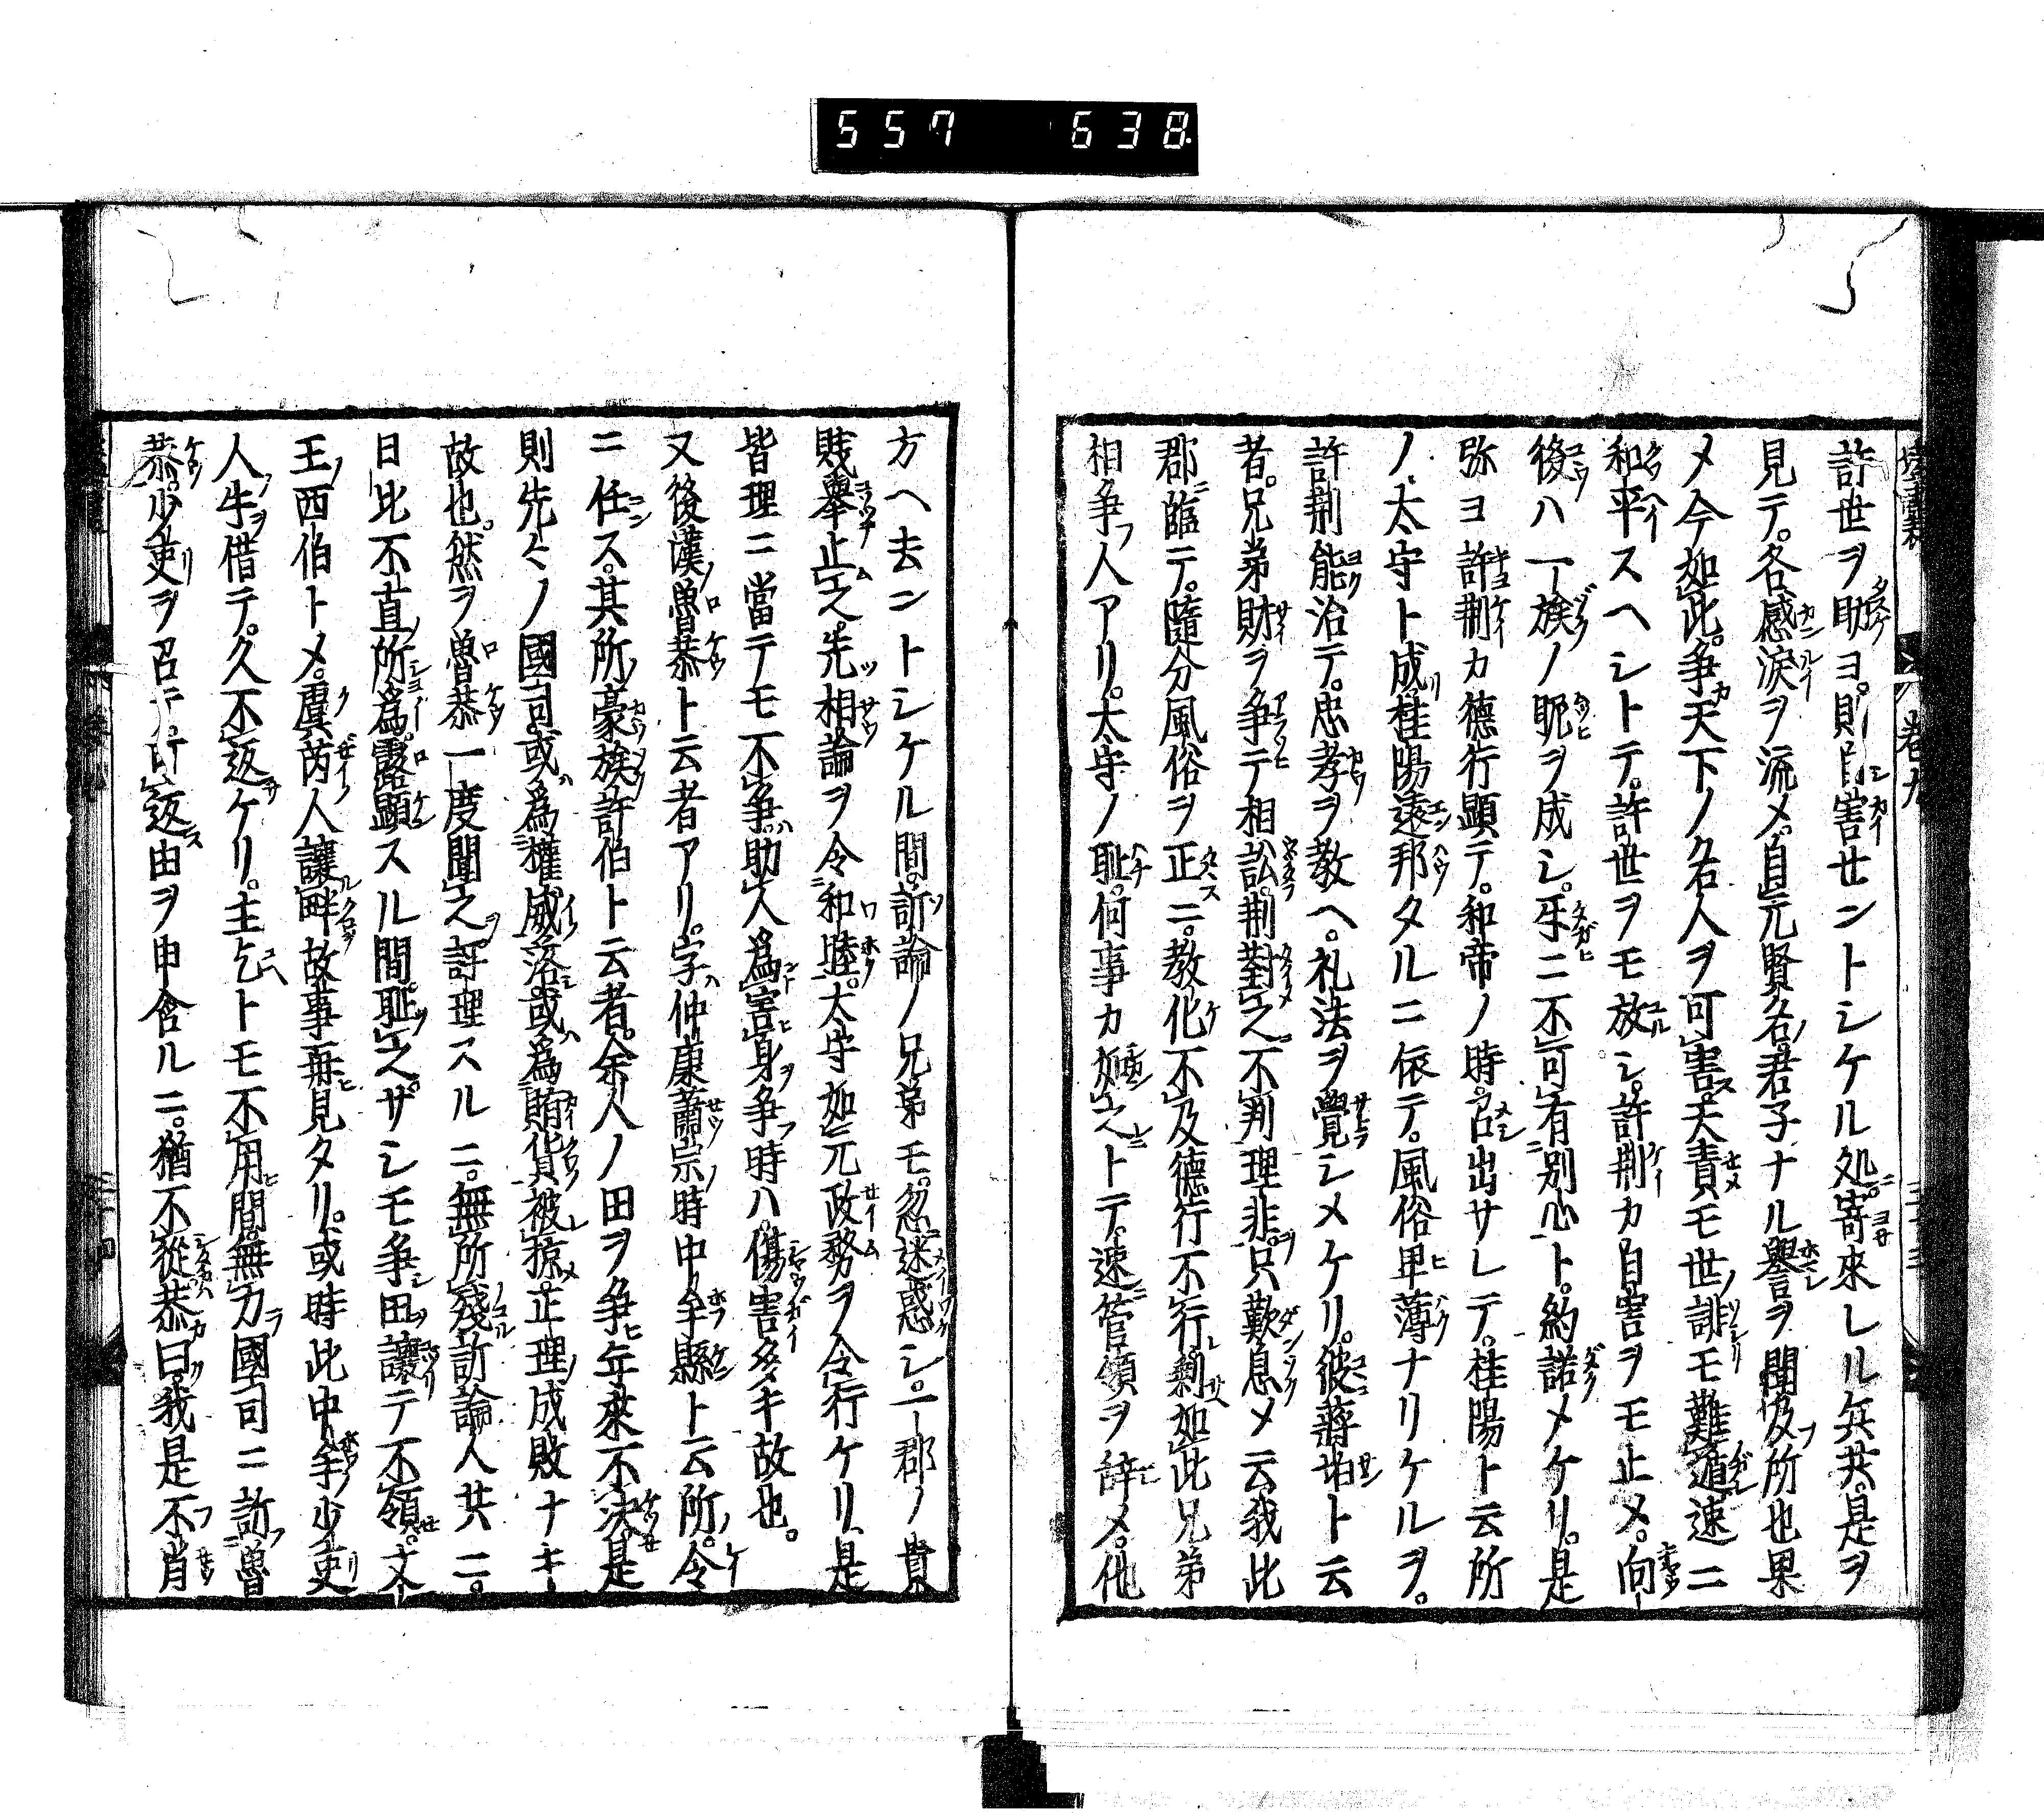 557 638
許世ヲ助ヨ。則自害せントシケル処。寄來レル兵共。是ヲ
見テ。各感涙ヲ流メ。自元賢名。君子ナル譽ヲ聞及所也果
メ今如此。争天下ノ名人ヲ可害。天責モ世ノ誹モ難遁速ニ
和平スヘシトテ。許世ヲモ放シ。許荆カ自害ヲモ止メ。向
後ハ一族ノ昵ヲ成シ。牙ニ不可有別心ト。約諾メケリ。是
弥ヨ許荆カ德行顯テ。和帝ノ時。召出サレテ。桂陽ト云所
ノ。太守ト成。桂陽遠邦タルニ依テ。風俗卑薄ナリケルヲ。
許荆能治テ。忠孝ヲ教ヘ。礼法ヲ覺シメケリ。彼蔣均ト云
者。兄弟財ヲ争テ相訟。荆對之不判理非。只歎息メ云我此
郡臨テ。隨分風俗ヲ正ニ。教化不及德行不行。剰如此兄弟
相争フ人アリ。太守ノ耻。何事カ如之トテ。速管領ヲ辞メ。他
方ヘ去ントシケル間。訴論ノ兄弟モ。忽迷惑シ。一郡ノ貴
賎舉止之。先相論ヲ令和睦。太守如元政務ヲ令行ケリ。是
皆理ニ當テモ不争。助人爲害身争時ハ。傷害多キ故也。
又後漢ノ魯恭ト云者アリ。字ハ仲康肅宗ノ時中牟縣ト云所。令
ニ任ス。其所ノ豪族許伯ト云者。余人ノ田ヲ争年來不決。是
則先々ノ國司。或爲權威落。或爲賄貨被掠。正理ノ成敗ナキ
故也。然ヲ魯恭一度聞之評理スルニ。無所殘訴論人共ニ。
日比不直所爲。露顯スル間。耻之。サシモ争田讓テ不領。文
王西伯トメ。虞芮人讓畔故事再見タリ。或時此中牟ノ少吏
人ノ牛ヲ借テ。久不返ケリ。主乞トモ不用間。無力國司ニ訴フ魯
恭。少吏ヲ召テ。可返由ヲ申含ルニ。猶不從恭曰。我是不肖